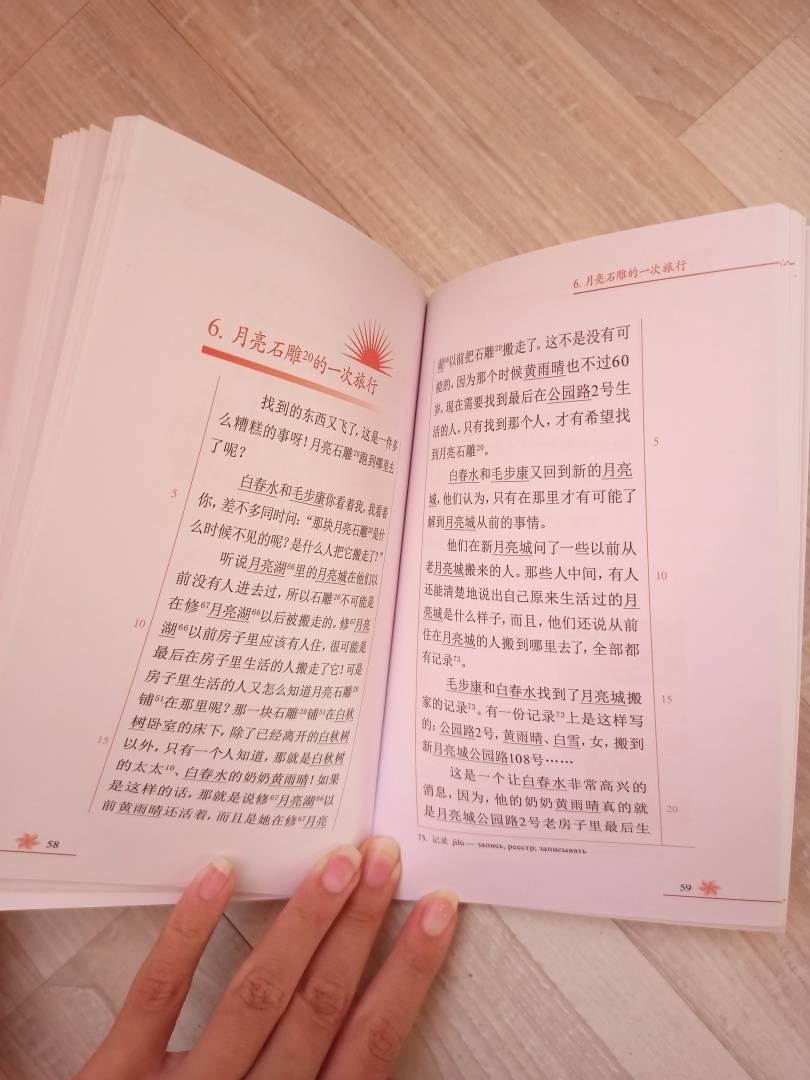 6. 月亮石雕20的一次旅行
找到的东西又飞了，这是一件多
么糟糕的事呀！月亮石雕20跑到哪里去
了呢？
白春水和毛步康你看着我，我看着
5
你，差不多同时问：“那块月亮石雕20是什
么时候不见的呢？是什么人把它搬走了？”
听说月亮湖66里的月亮城在他们以
前没有人进去过，所以石雕20不可能是
在修67月亮湖66以后被搬走的。修67月亮
10
湖66以前房子里应该有人住，很可能是
最后在房子里生活的人搬走了它！可是
房子里生活的人又怎么知道月亮石雕20
铺51在那里呢？那一块石雕20铺51在白秋
树卧室的床下，除了已经离开的白秋树
15
以外，只有一个人知道，那就是白秋树
的太太10、白春水的奶奶黄雨晴！如果
是这样的话，那就是说修67月亮湖66以
前黄雨晴还活着，而且是她在修67月亮
58
6. 月亮石雕的一次旅行
湖66以前把石雕20搬走了。这不是没有可
能的，因为那个时候黄雨晴也不过60
岁。现在需要找到最后在公园路2号生
活的人，只有找到那个人，才有希望找
到月亮石雕20。
5
白春水和毛步康又回到新的月亮
城，他们认为，只有在那里才有可能了
解到月亮城从前的事情。
他们在新月亮城问了一些以前从
老月亮城搬来的人。那些人中间，有人
10
还能清楚地说出自己原来生活过的月
亮城是什么样子，而且，他们还说从前
住在月亮城的人搬到哪里去了，全部都
有记录73。
毛步康和白春水找到了月亮城搬
15
家的记录73。有一份记录73上是这样写
的：公园路2号，黄雨晴、白雪，女，搬到
新月亮城公园路108号……
这是一个让白春水非常高兴的
消息，因为，他的奶奶黄雨晴真的就
20
是月亮城公园路2号老房子里最后生
73. 记录 jìlù — запись, реестр; записывать
59